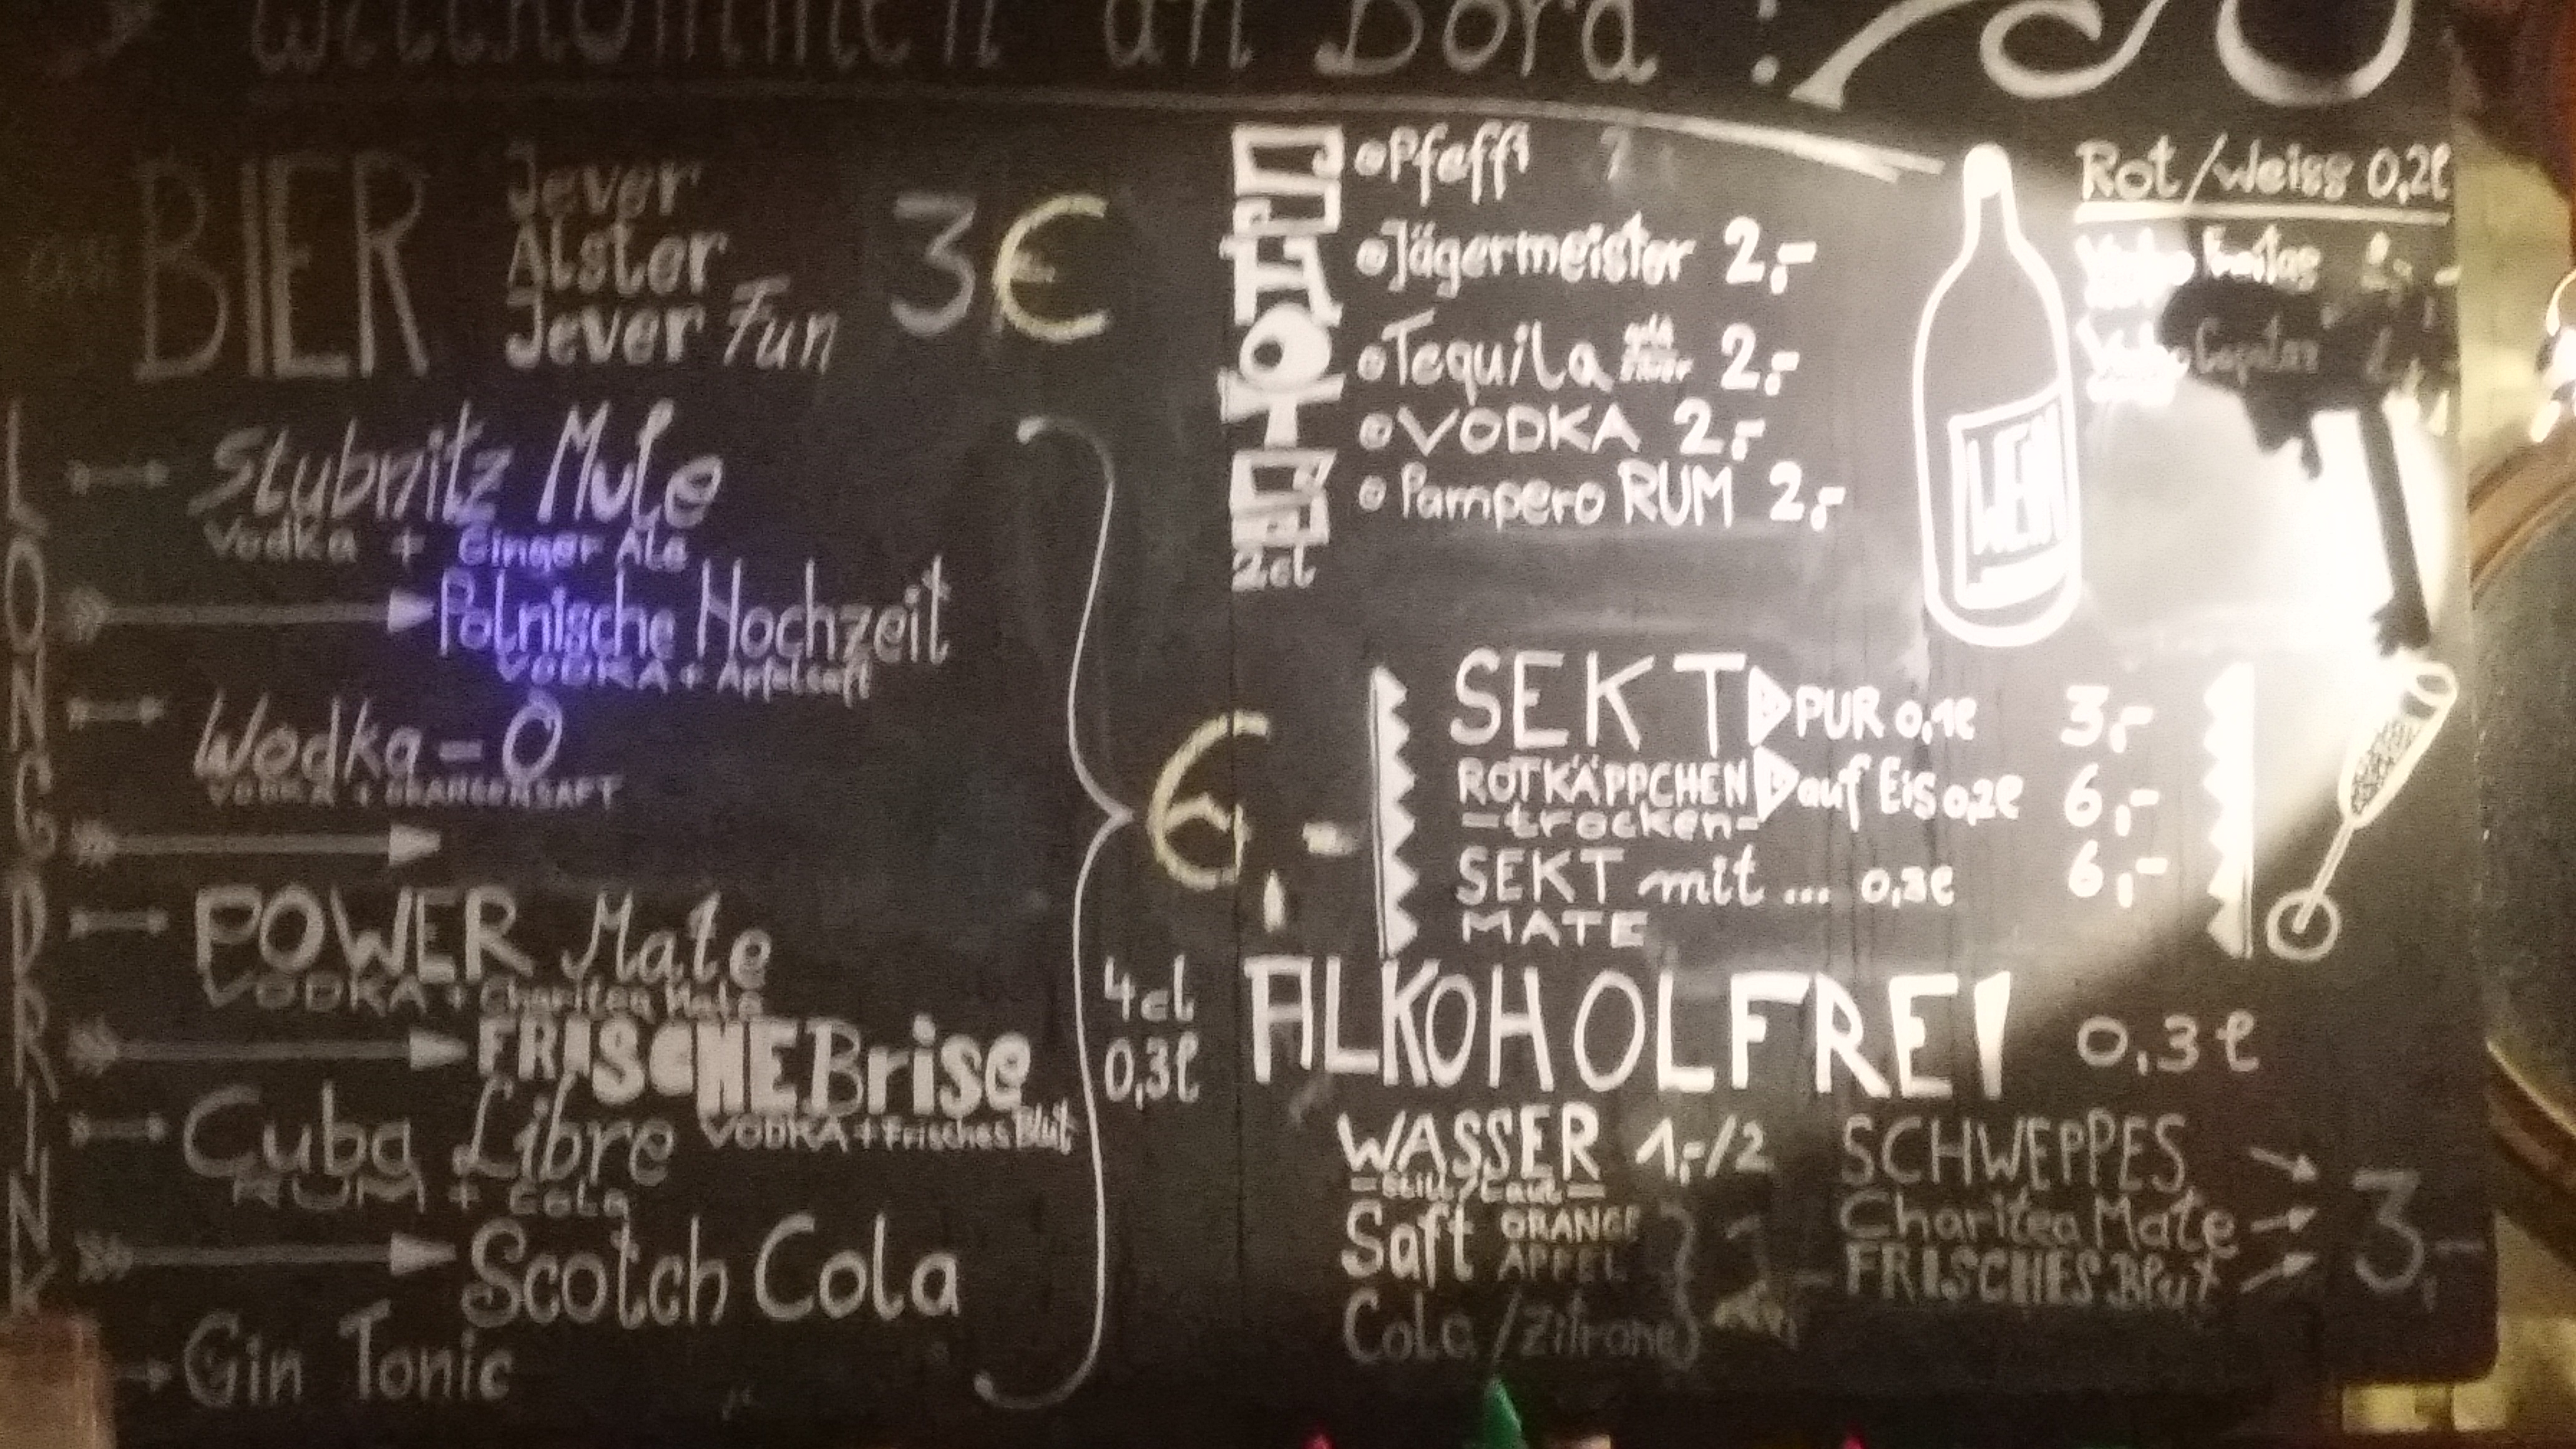 Willkommen an Bord!
BIER
Jever
Alster
Jever Fun
3€
LONGDRINK
Stubnitz Mule
Vodka + Ginger Ale
Polnische Hochzeit
VODKA + Apfelsaft
Wodka-O
VODKA + ORANGENSAFT
POWER Mate
VODKA + Charitea Mate
FRISCHE Brise
VODKA + Frisches Blut
Cuba Libre
RUM + Cola
Scotch Cola
Gin Tonic
6,-
4cl
0,3l
SHOTS
2cl
Pfeffi
Jägermeister 2,-
Tequila 2,-
VODKA 2,-
Pampero RUM 2,-
WEIN
Rot/weiss 0,2l
SEKT PUR 0,1l 3,-
ROTKÄPPCHEN auf Eis 0,2l 6,-
-trocken-
SEKT mit... 0,2l 6,-
MATE
ALKOHOLFREI 0,3l
WASSER 1,-/2
-still/laut-
Saft ORANGE
APFEL
Cola/Zitrone
SCHWEPPES
Charitea Mate
FRISCHES Blut
3,-